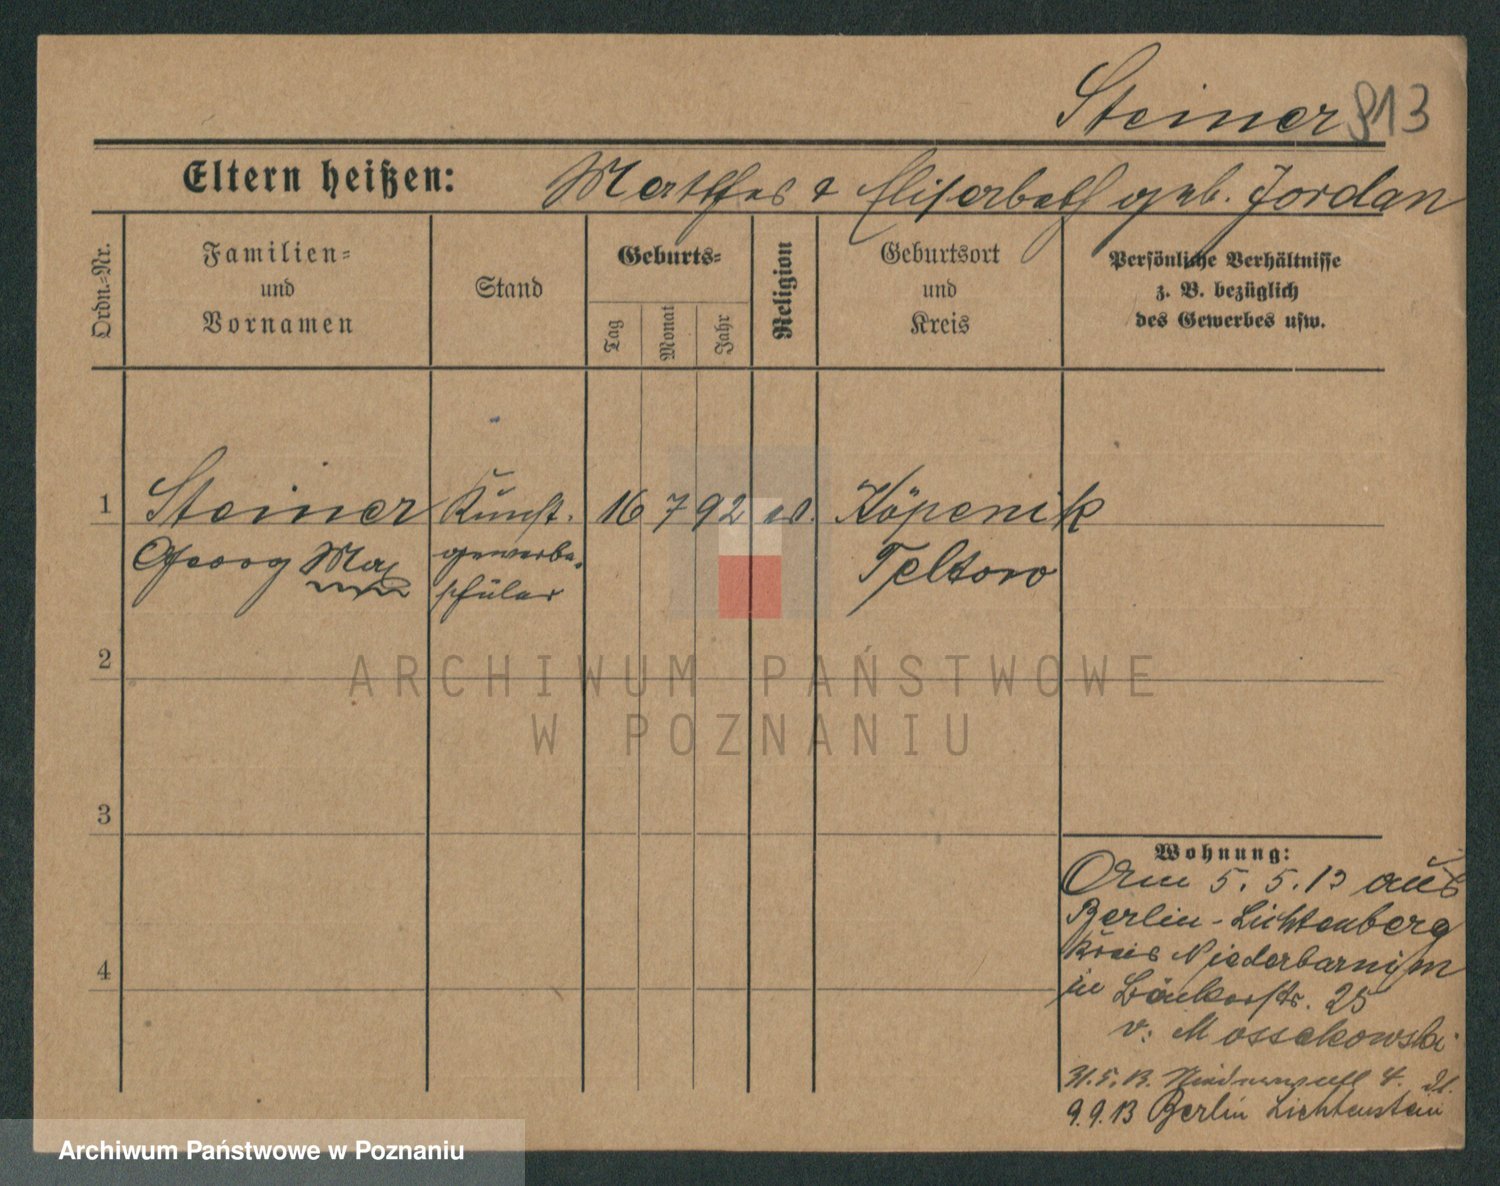 Steiner 813
Eltern heißen: Matthes & Elisabeth geb. Jordan
Ordn.=Nr.
Familien=
und
Vornamen
Stand
Geburts=
Tag
Monat
Jahr
Religion
Geburtsort
und
Kreis
Persönliche Verhältnisse
z. B. bezüglich
des Gewerbes usw.
1 Steiner Kunst- 16 7 92 ev. Köpenik
Georg Max gewerbe- Teltow
schüler
2
3
4
Wohnung:
Am 5. 5. 13 aus
Berlin-Lichtenberg
Kreis Niederbarnim
in Bäckerstr. 25
v. Mossakowski
31.5.13. 4.
9.9.13 Berlin Lichtenstein
ARCHIWUM PAŃSTWOWE
W POZNANIU
Archiwum Państwowe w Poznaniu